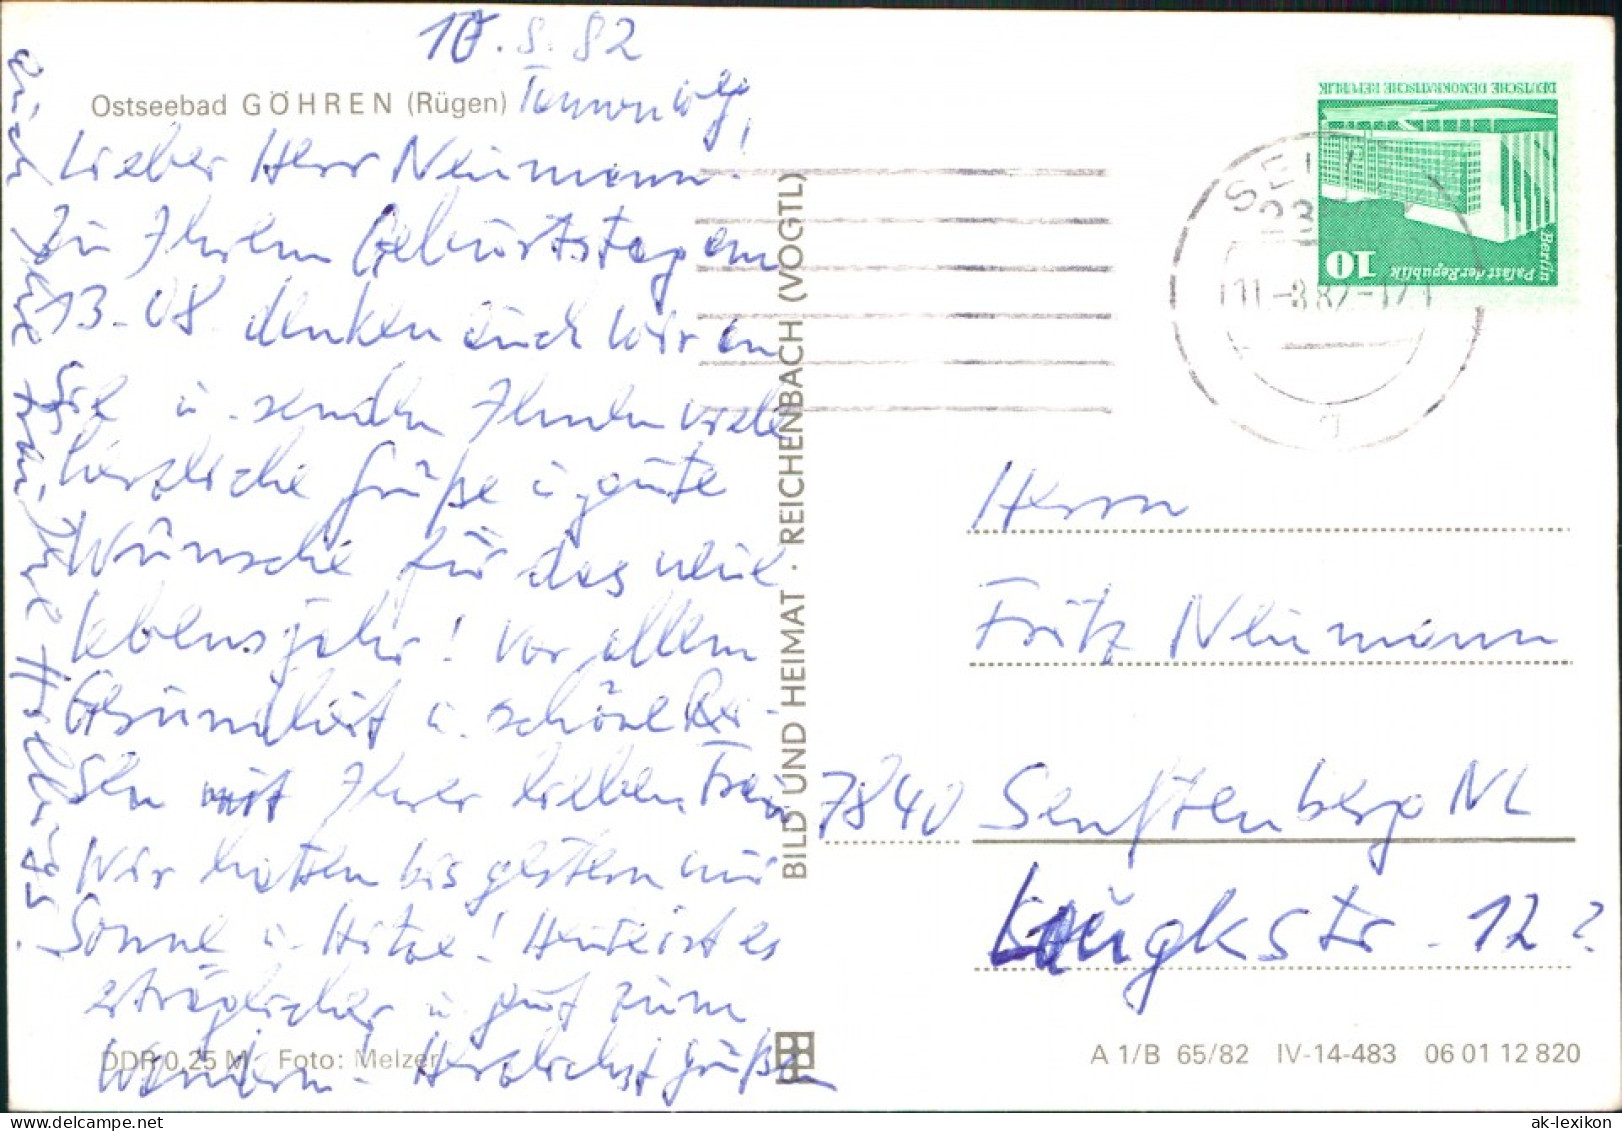 10.8.82
Ostseebad GÖHREN (Rügen)
Lieber Herr Neumann.
Zu Ihrem Geburtstag am
13.08. denken auch wir an
Sie u. senden Ihnen viele
herzliche Grüße u. gute
Wünsche für das neue
Lebensjahr! Vor allem
Gesundheit u. schöne Rei-
sen mit Ihrer lieben Frau
Wir hatten bis gestern nur
Sonne u. Hitze! Heute ist es
erträglicher u. gut zum
Wandern. Herzlichst grüßen
DDR 0,25 M Foto: Melzer
BILD UND HEIMAT · REICHENBACH (VOGTL)
DEUTSCHE DEMOKRATISCHE REPUBLIK
10
Palast der Republik
Berlin
11.-8.82-12
Herrn
Fritz Neumann
7840 Senftenberg NL
Str. 12?
A 1/B 65/82 IV-14-483 06 01 12 820
ak-lexikon.com